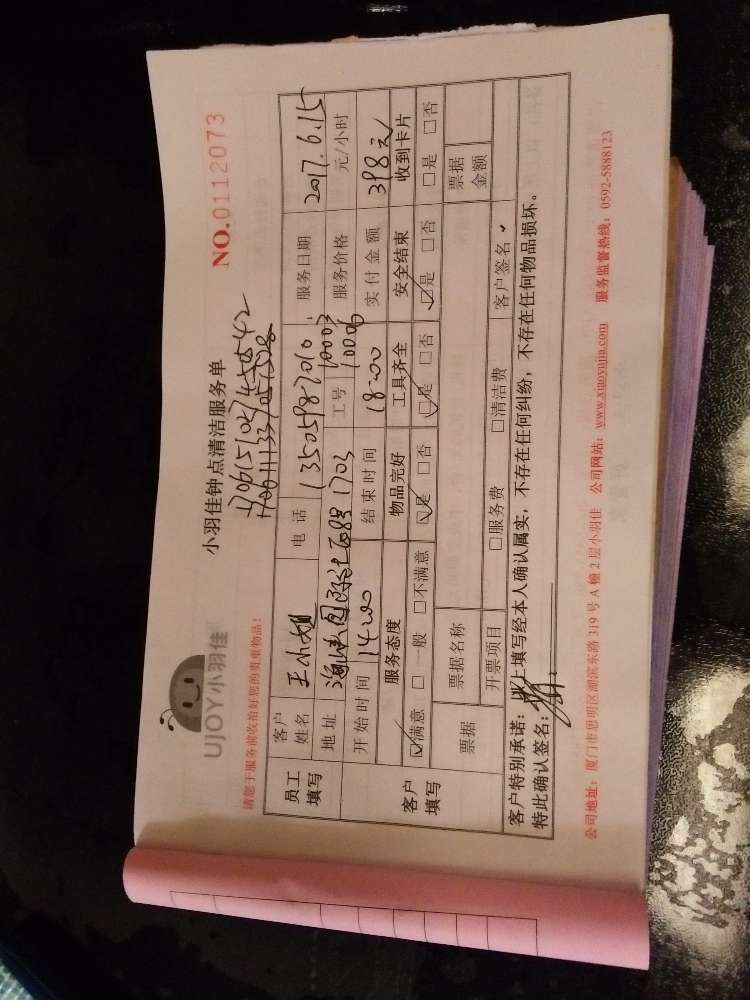 UJOY小羽佳
小羽佳钟点清洁服务单
NO.0112073
请您于服务前收拾好您的贵重物品!
员工填写
客户姓名 王小姐 电话 13505987010 服务日期 2017.6.15
地址 1703 工号 10003 10006 服务价格 元/小时
开始时间 14:00 结束时间 18:00 实付金额 398元
客户填写
服务态度 物品完好 工具齐全 安全结束 收到卡片
☑满意 □一般 □不满意 ☑是 □否 ☑是 □否 ☑是 □否 □是 □否
票据 票据名称 票据金额
开票项目 □服务费 □清洁费 客户签名
客户特别承诺:以上填写经本人确认属实,不存在任何纠纷,不存在任何物品损坏。
特此确认签名:
公司地址:厦门市思明区湖滨东路319号A幢2层小羽佳 公司网站:www.xiaoyujia.com 服务监督热线:0592-5888123